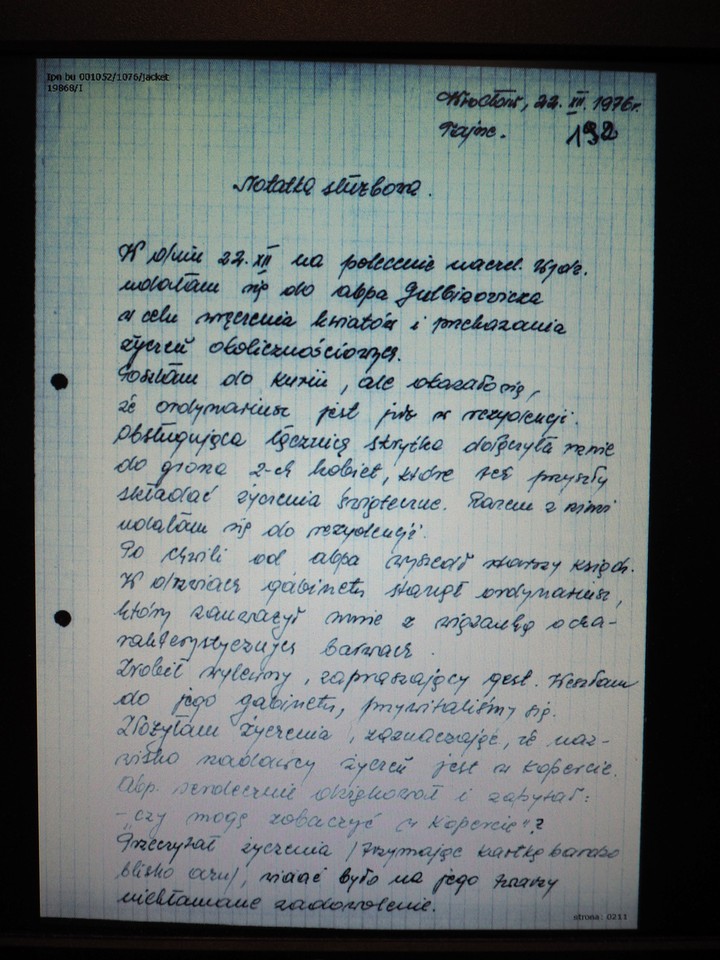 Ipn bu 001052/1076/jacket
19868/I
Wrocław, 22. XII. 1976r.
Tajne. 192
Notatka służbowa.
W dniu 22. XII na polecenie naczel. Wydz.
udałam się do abpa Gulbinowicza
w celu wręczenia kwiatów i przekazania
życzeń okolicznościowych.
Poszłam do kurii, ale okazało się,
że ordynariusz jest już w rezydencji.
Obsługująca łącznicę siostra dołączyła mnie
do grona 2-ch kobiet, które też przyszły
składać życzenia świąteczne. Razem z nimi
udałam się do rezydencji.
Po chwili od abpa wyszedł starszy ksiądz.
W drzwiach gabinetu stanął ordynariusz,
który zauważył mnie z wiązanką o cha-
rakterystycznych barwach.
Zrobił wylewny, zapraszający gest. Weszłam
do jego gabinetu, przywitaliśmy się.
Złożyłam życzenia, zaznaczając, że naz-
wisko nadawcy życzeń jest w kopercie.
Abp. serdecznie dziękował i zapytał:
- "czy mogę zobaczyć w kopercie"?
Przeczytał życzenia /trzymając kartkę bardzo
blisko oczu/, widać było na jego twarzy
niekłamane zadowolenie.
strona: 0211